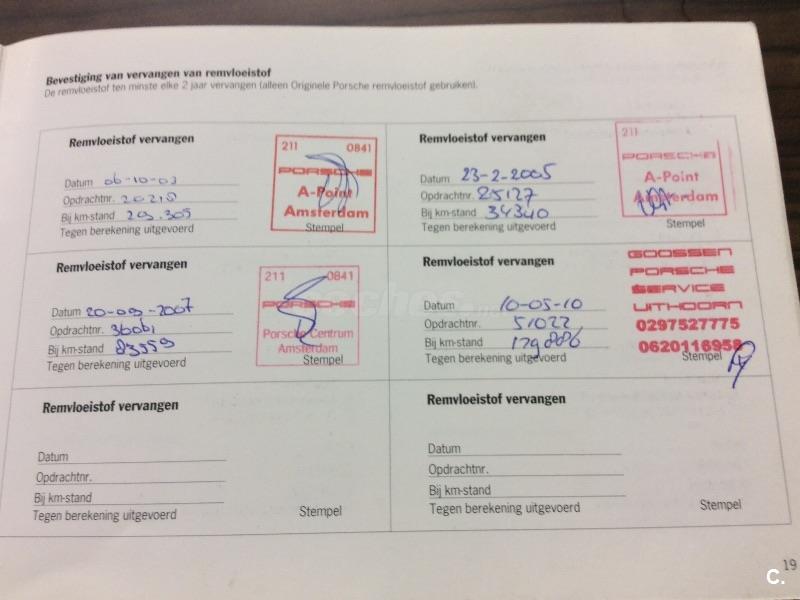 Bevestiging van vervangen van remvloeistof
De remvloeistof ten minste elke 2 jaar vervangen (alleen Originele Porsche remvloeistof gebruiken).
Remvloeistof vervangen
211 0841
PORSCHE
A-Point
Amsterdam
Datum 06-10-03
Opdrachtnr. 20215
Bij km-stand 203.305
Tegen berekening uitgevoerd
Stempel
Remvloeistof vervangen
211
PORSCHE
A-Point
Amsterdam
Datum 23-2-2005
Opdrachtnr. 25127
Bij km-stand 34340
Tegen berekening uitgevoerd
Stempel
Remvloeistof vervangen
211 0841
PORSCHE
Porsche Centrum
Amsterdam
Datum 20-09-2007
Opdrachtnr. 36061
Bij km-stand 83559
Tegen berekening uitgevoerd
Stempel
Remvloeistof vervangen
GOOSSEN
PORSCHE
SERVICE
UITHOORN
0297527775
0620116958
Datum 10-05-10
Opdrachtnr. 51022
Bij km-stand 129886
Tegen berekening uitgevoerd
Stempel
Remvloeistof vervangen
Datum
Opdrachtnr.
Bij km-stand
Tegen berekening uitgevoerd
Stempel
Remvloeistof vervangen
Datum
Opdrachtnr.
Bij km-stand
Tegen berekening uitgevoerd
Stempel
19
C.